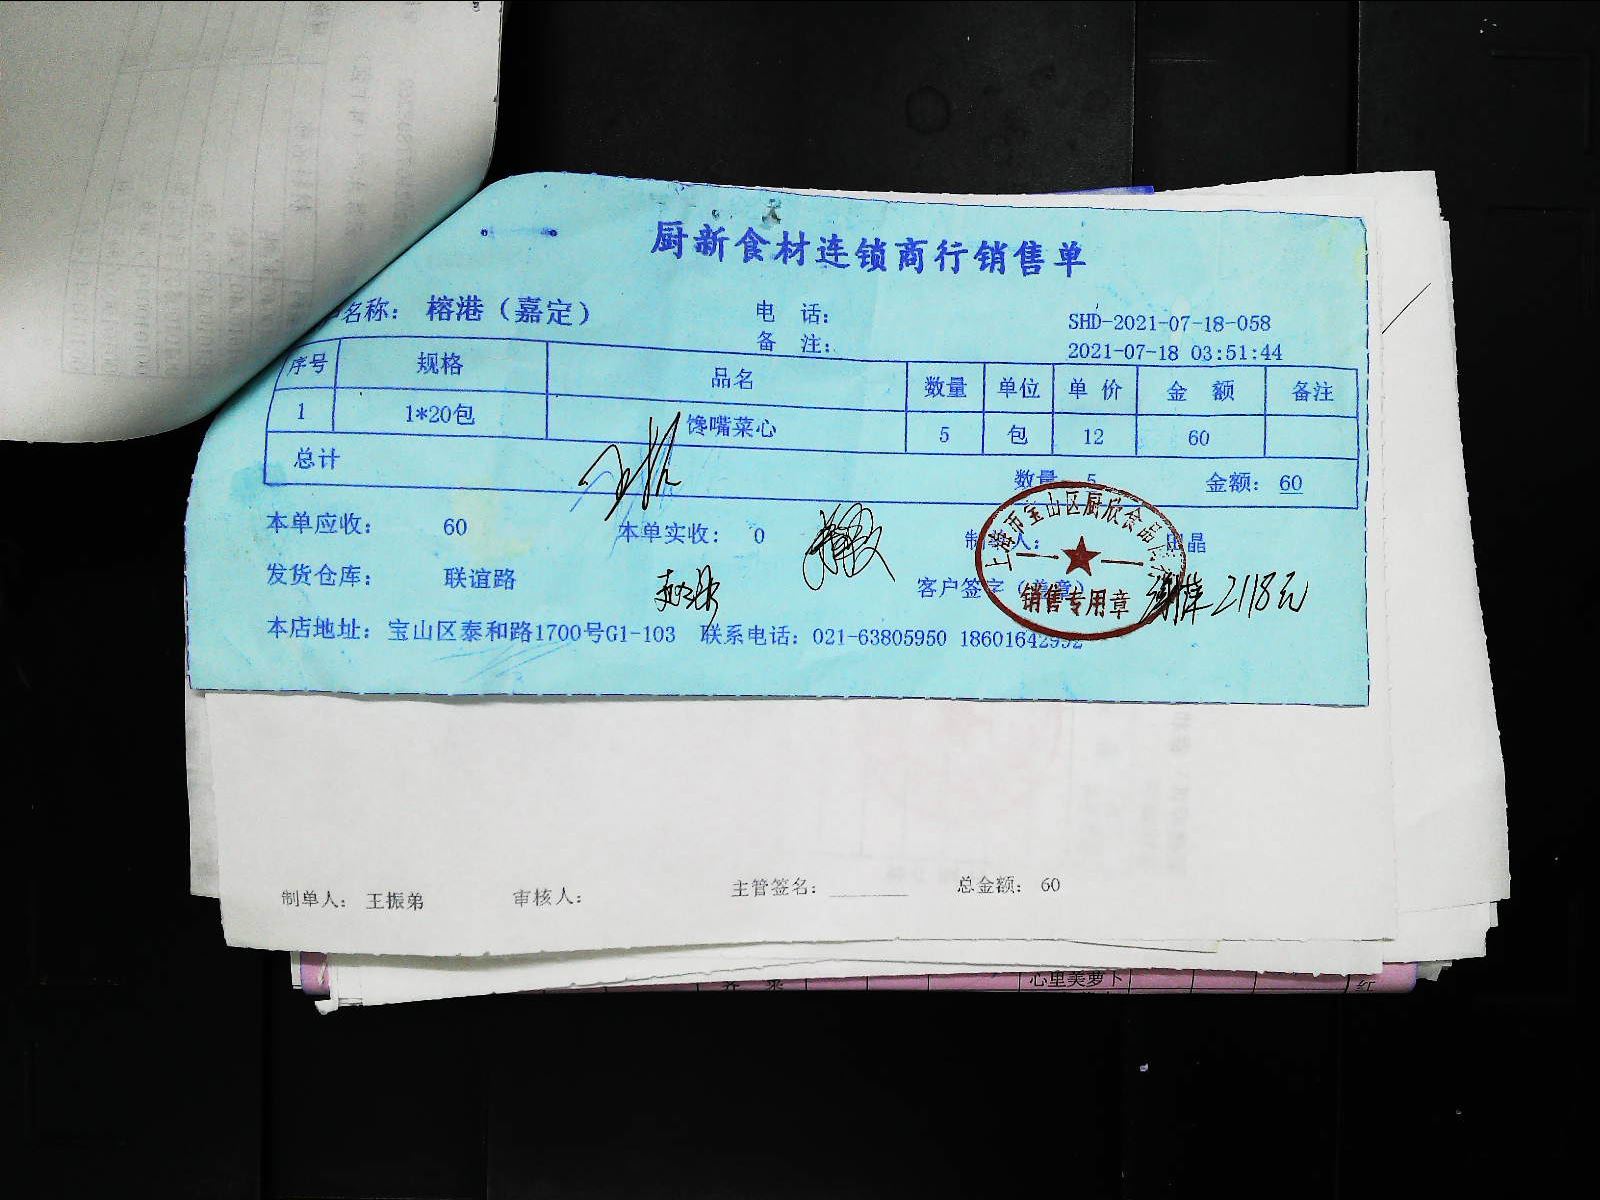 厨新食材连锁商行销售单
名称： 榕港（嘉定）
电 话：
SHD-2021-07-18-058
备 注：
2021-07-18 03:51:44
序号 规格 品名 数量 单位 单价 金额 备注
1 1*20包 馋嘴菜心 5 包 12 60
总计 数量 5 金额： 60
本单应收： 60 本单实收： 0 制 人： 晶
发货仓库： 联谊路 客户签字（盖章）
本店地址： 宝山区泰和路1700号G1-103 联系电话：021-63805950 18601642992
上海市宝山区厨欣食品
销售专用章
2118元
制单人： 王振弟 审核人： 主管签名： 总金额： 60
心里美萝卜